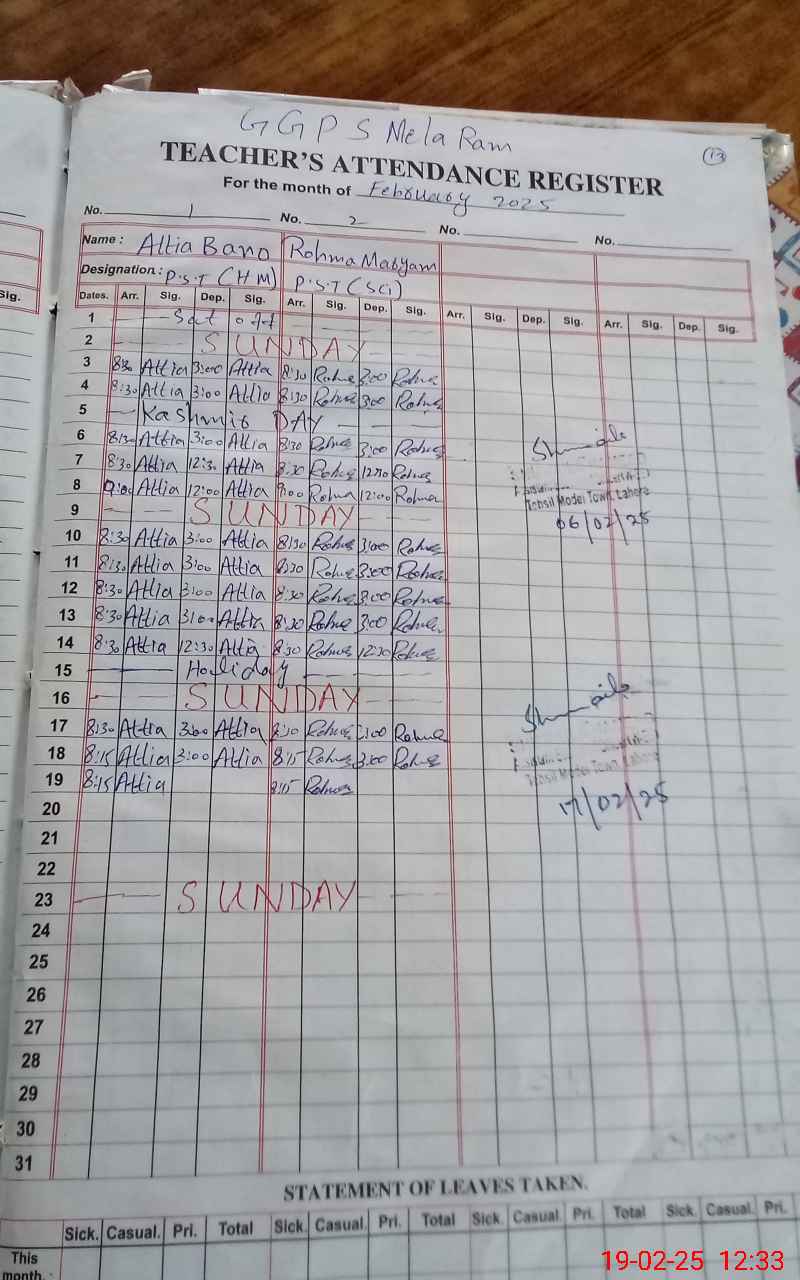 G G P S Mela Ram
13
TEACHER'S ATTENDANCE REGISTER
For the month of February 2025
No. 1 No. 2 No. No.
Name: Attia Bano Rohma Maryam
Designation: P.S.T (H M) P.S.T (Sci)
Sig. Dates. Arr. Sig. Dep. Sig. Arr. Sig. Dep. Sig. Arr. Sig. Dep. Sig. Arr. Sig. Dep. Sig.
1 Sat off
2 SUNDAY
3 8:30 Attia 3:00 Attia 8:30 Rohma 3:00 Rohma
4 8:30 Attia 3:00 Attia 8:30 Rohma 3:00 Rohma
5 Kashmir DAY
6 8:30 Attia 3:00 Attia 8:30 Rohma 3:00 Rohma
7 8:30 Attia 12:30 Attia 8:30 Rohma 12:30 Rohma
8 9:00 Attia 12:00 Attia 9:00 Rohma 12:00 Rohma
Tehsil Model Town Lahore
9 SUNDAY
06/02/25
10 8:30 Attia 3:00 Attia 8:30 Rohma 3:00 Rohma
11 8:30 Attia 3:00 Attia 8:30 Rohma 3:00 Rohma
12 8:30 Attia 3:00 Attia 8:30 Rohma 3:00 Rohma
13 8:30 Attia 3:00 Attia 8:30 Rohma 3:00 Rohma
14 8:30 Attia 12:30 Attia 8:30 Rohma 12:30 Rohma
15 Holiday
16 SUNDAY
17 8:30 Attia 3:00 Attia 8:30 Rohma 3:00 Rohma
18 8:15 Attia 3:00 Attia 8:15 Rohma 3:00 Rohma
Tehsil Model Town Lahore
19 8:15 Attia 8:15 Rohma
17/02/25
20
21
22
23 SUNDAY
24
25
26
27
28
29
30
31
STATEMENT OF LEAVES TAKEN.
Sick. Casual. Pri. Total Sick. Casual. Pri. Total Sick. Casual. Pri. Total Sick. Casual. Pri.
This
month.
19-02-25 12:33